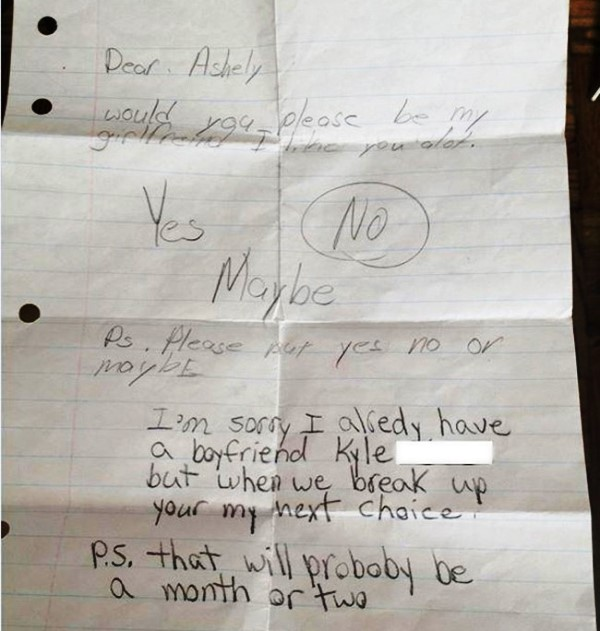 Dear. Ashely
would you please be my
girlfriend I like you alot.
Yes NO
Maybe
Ps. Please put yes no or
maybE
I'm sorry I alredy have
a boyfriend Kyle
but when we break up
your my next choice.
P.S. that will proboby be
a month or two